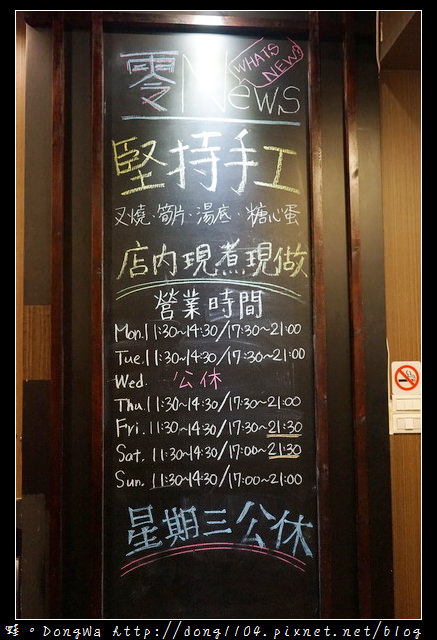 零News
WHATS NEW?
堅持手工
叉燒·筍片·湯底·糖心蛋
店內現煮現做
營業時間
Mon. 11:30~14:30/17:30~21:00
Tue. 11:30~14:30/17:30~21:00
Wed. 公休
Thu. 11:30~14:30/17:30~21:00
Fri. 11:30~14:30/17:30~21:30
Sat. 11:30~14:30/17:00~21:30
Sun. 11:30~14:30/17:00~21:00
星期三公休
DongWa http://dong1104.pixnet.net/blog